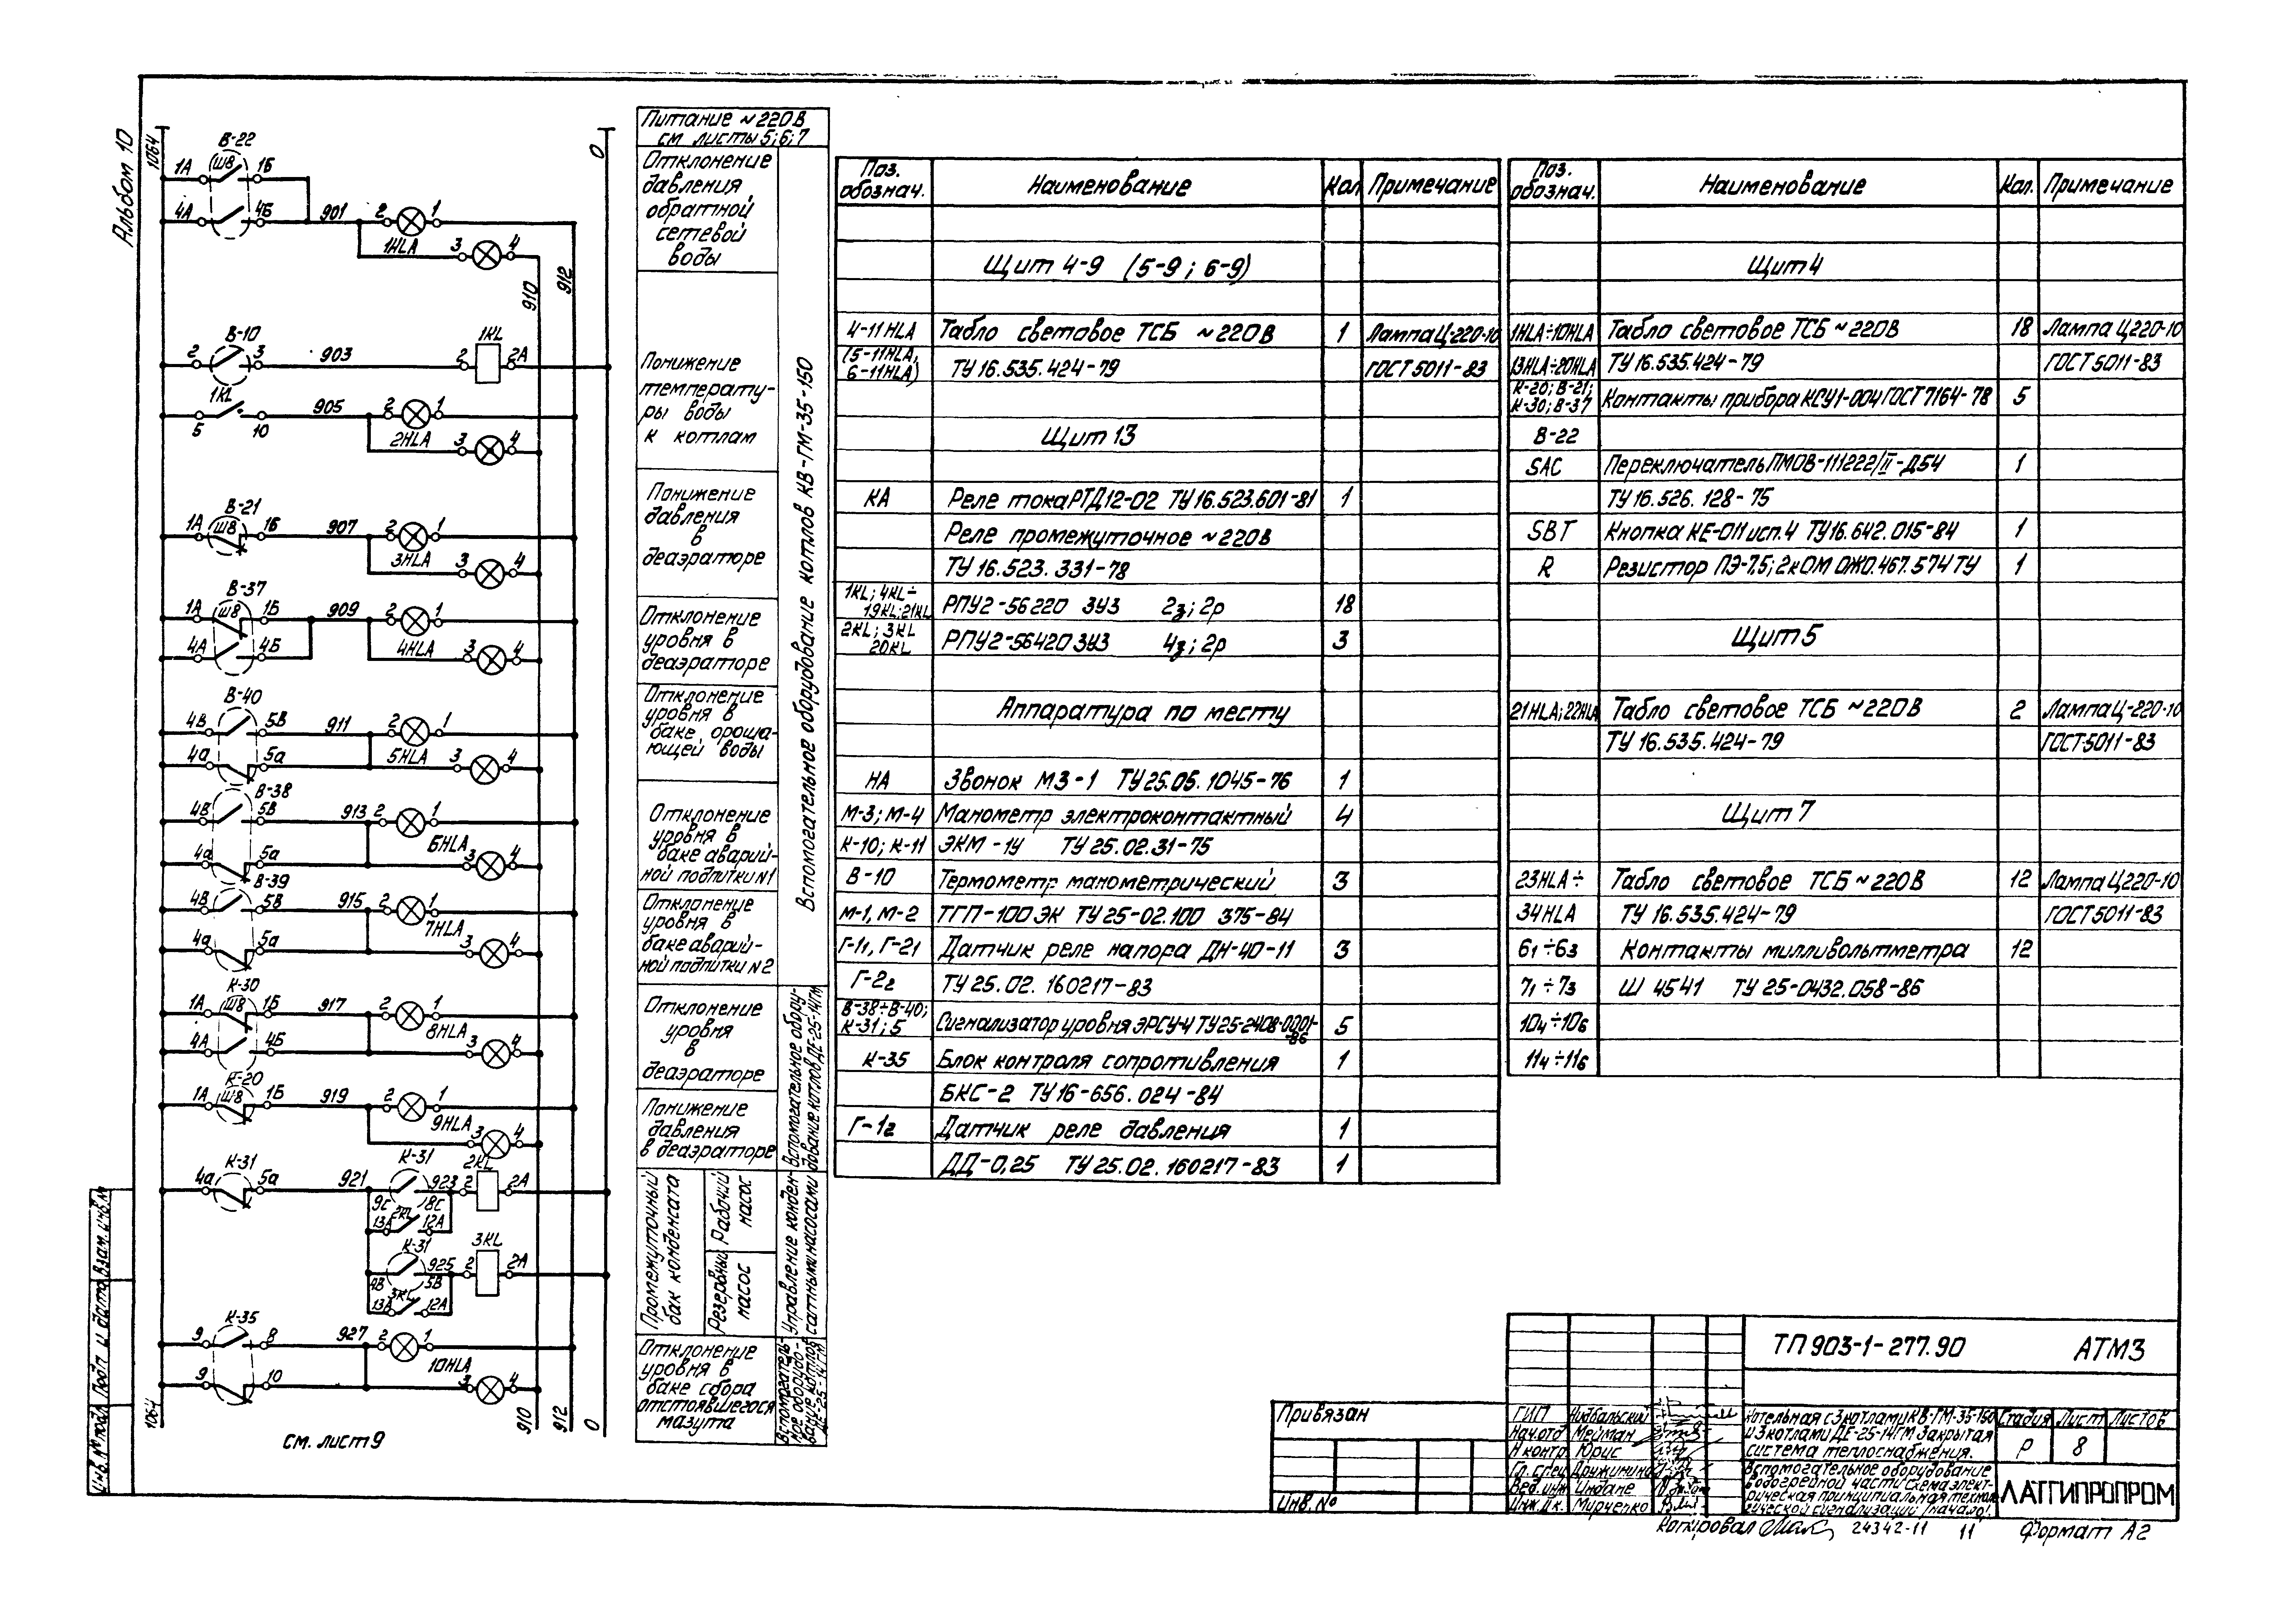 Альбом 10
1064
В-22
1А Ш8 1Б
4А 4Б 901 2 1
1HLA 3 4
910
912
0
В-10
2 3 903 2 1KL 2А
1KL
5 10 905 2 1
2HLA 3 4
В-21
1А Ш8 1Б 907 2 1
3HLA 3 4
В-37
1А Ш8 1Б 909 2 1
4А 4Б 4HLA 3 4
В-40
4В 5В 911 2 1
4а 5а 5HLA 3 4
В-38
4В 5В 913 2 1
6HLA
4а 5а 3 4
В-39
4В 5В 915 2 1
7HLA
4а 5а 3 4
К-30
1А Ш8 1Б 917 2 1
8HLA
4А 4Б 3 4
К-20
1А Ш8 1Б 919 2 1
9HLA 3 4
К-31
4а 5а 921
К-31
9С 8С 923 2 2KL 2А
13А 2KL 12А
К-31
4В 5В 925 2 3KL 2А
13А 3KL 12А
К-35
9 8 927 2 1
10HLA
9 10 3 4
1064
910
912
0
см. лист 9
Питание ~220В
см листы 5;6;7
Отклонение
давления
обратной
сетевой
воды
Понижение
температу-
ры воды
к котлам
Понижение
давления
в
деаэраторе
Отклонение
уровня в
деаэраторе
Отклонение
уровня в
баке ороша-
ющей воды
Отклонение
уровня в
баке аварий-
ной подпитки N1
Отклонение
уровня в
баке аварий-
ной подпитки N2
Отклонение
уровня
в
деаэраторе
Понижение
давления
в деаэраторе
Промежуточный
бак конденсата
Рабочий
насос
Резервный
насос
Отклонение
уровня в
баке сбора
отстоявшегося
мазута
Вспомогательное оборудование котлов КВ-ГМ-35-150
Вспомогательное обору-
дование котлов ДЕ-25-14ГМ
Управление конден-
сатными насосами
Вспомогатель-
ное оборудо-
вание котлов
ДЕ-25-14ГМ
Поз. обознач. Наименование Кол Примечание
Щит 4-9 (5-9; 6-9)
4-11HLA Табло световое ТСБ ~220В 1 Лампа Ц-220-10
(5-11HLA, 6-11HLA) ТУ 16.535.424-79 ГОСТ 5011-83
Щит 13
КА Реле тока РТД12-02 ТУ 16.523.601-81 1
Реле промежуточное ~220В
ТУ 16.523.331-78
1KL; 4KL÷19KL; 21KL РПУ2-56220 3У3 2з; 2р 18
2KL; 3KL 20KL РПУ2-56420 3У3 4з; 2р 3
Аппаратура по месту
НА Звонок МЗ-1 ТУ 25.05.1045-76 1
М-3; М-4 Манометр электроконтактный 4
К-10; К-11 ЭКМ-1У ТУ 25.02.31-75
В-10 Термометр манометрический 3
М-1, М-2 ТГП-100ЭК ТУ 25-02.100 375-84
Г-11, Г-21 Датчик реле напора ДН-40-11 3
Г-2г ТУ 25.02.160217-83
В-38÷В-40; К-31; 5 Сигнализатор уровня ЭРСУ-4 ТУ 25-2408-0001-86 5
К-35 Блок контроля сопротивления 1
БКС-2 ТУ 16-656.024-84
Г-1г Датчик реле давления 1
ДД-0,25 ТУ 25.02.160217-83 1
Поз. обознач. Наименование Кол. Примечание
Щит 4
1HLA÷10HLA Табло световое ТСБ ~220В 18 Лампа Ц220-10
13HLA÷20HLA ТУ 16.535.424-79 ГОСТ 5011-83
К-20; В-21; К-30; В-37 Контакты прибора КСУ1-004 ГОСТ 7164-78 5
В-22
SAC Переключатель ПМОВ-111222/II-Д54 1
ТУ 16.526.128-75
SBT Кнопка КЕ-011 исп.4 ТУ 16.642.015-84 1
R Резистор ПЭ-7,5; 2кОМ ОЖО.467.574 ТУ 1
Щит 5
21HLA; 22HLA Табло световое ТСБ ~220В 2 Лампа Ц-220-10
ТУ 16.535.424-79 ГОСТ 5011-83
Щит 7
23HLA÷ Табло световое ТСБ ~220В 12 Лампа Ц220-10
34HLA ТУ 16.535.424-79 ГОСТ 5011-83
6₁÷6₃ Контакты милливольтметра 12
7₁÷7₃ Ш 4541 ТУ 25-0432.058-86
10₄÷10₆
11₄÷11₆
ТП 903-1-277.90 АТМ3
Привязан
Инв. №
ГИП Нидбальский
Нач.отд Мейман
Н контр Юрис
Гл. спец Дружинина
Вед. инж Индане
Инж. II к. Мирченко
Котельная с 3 котлами КВ-ГМ-35-150
и 3 котлами ДЕ-25-14ГМ Закрытая
система теплоснабжения.
Стадия Лист Листов
Р 8
Вспомогательное оборудование
водогрейной части Схема элект-
рическая принципиальная техноло-
гической сигнализации (начало).
ЛАТГИПРОПРОМ
Копировал 24342-11 11 Формат А2
Взам. инв. №
Подп. и дата
Инв. № подл.